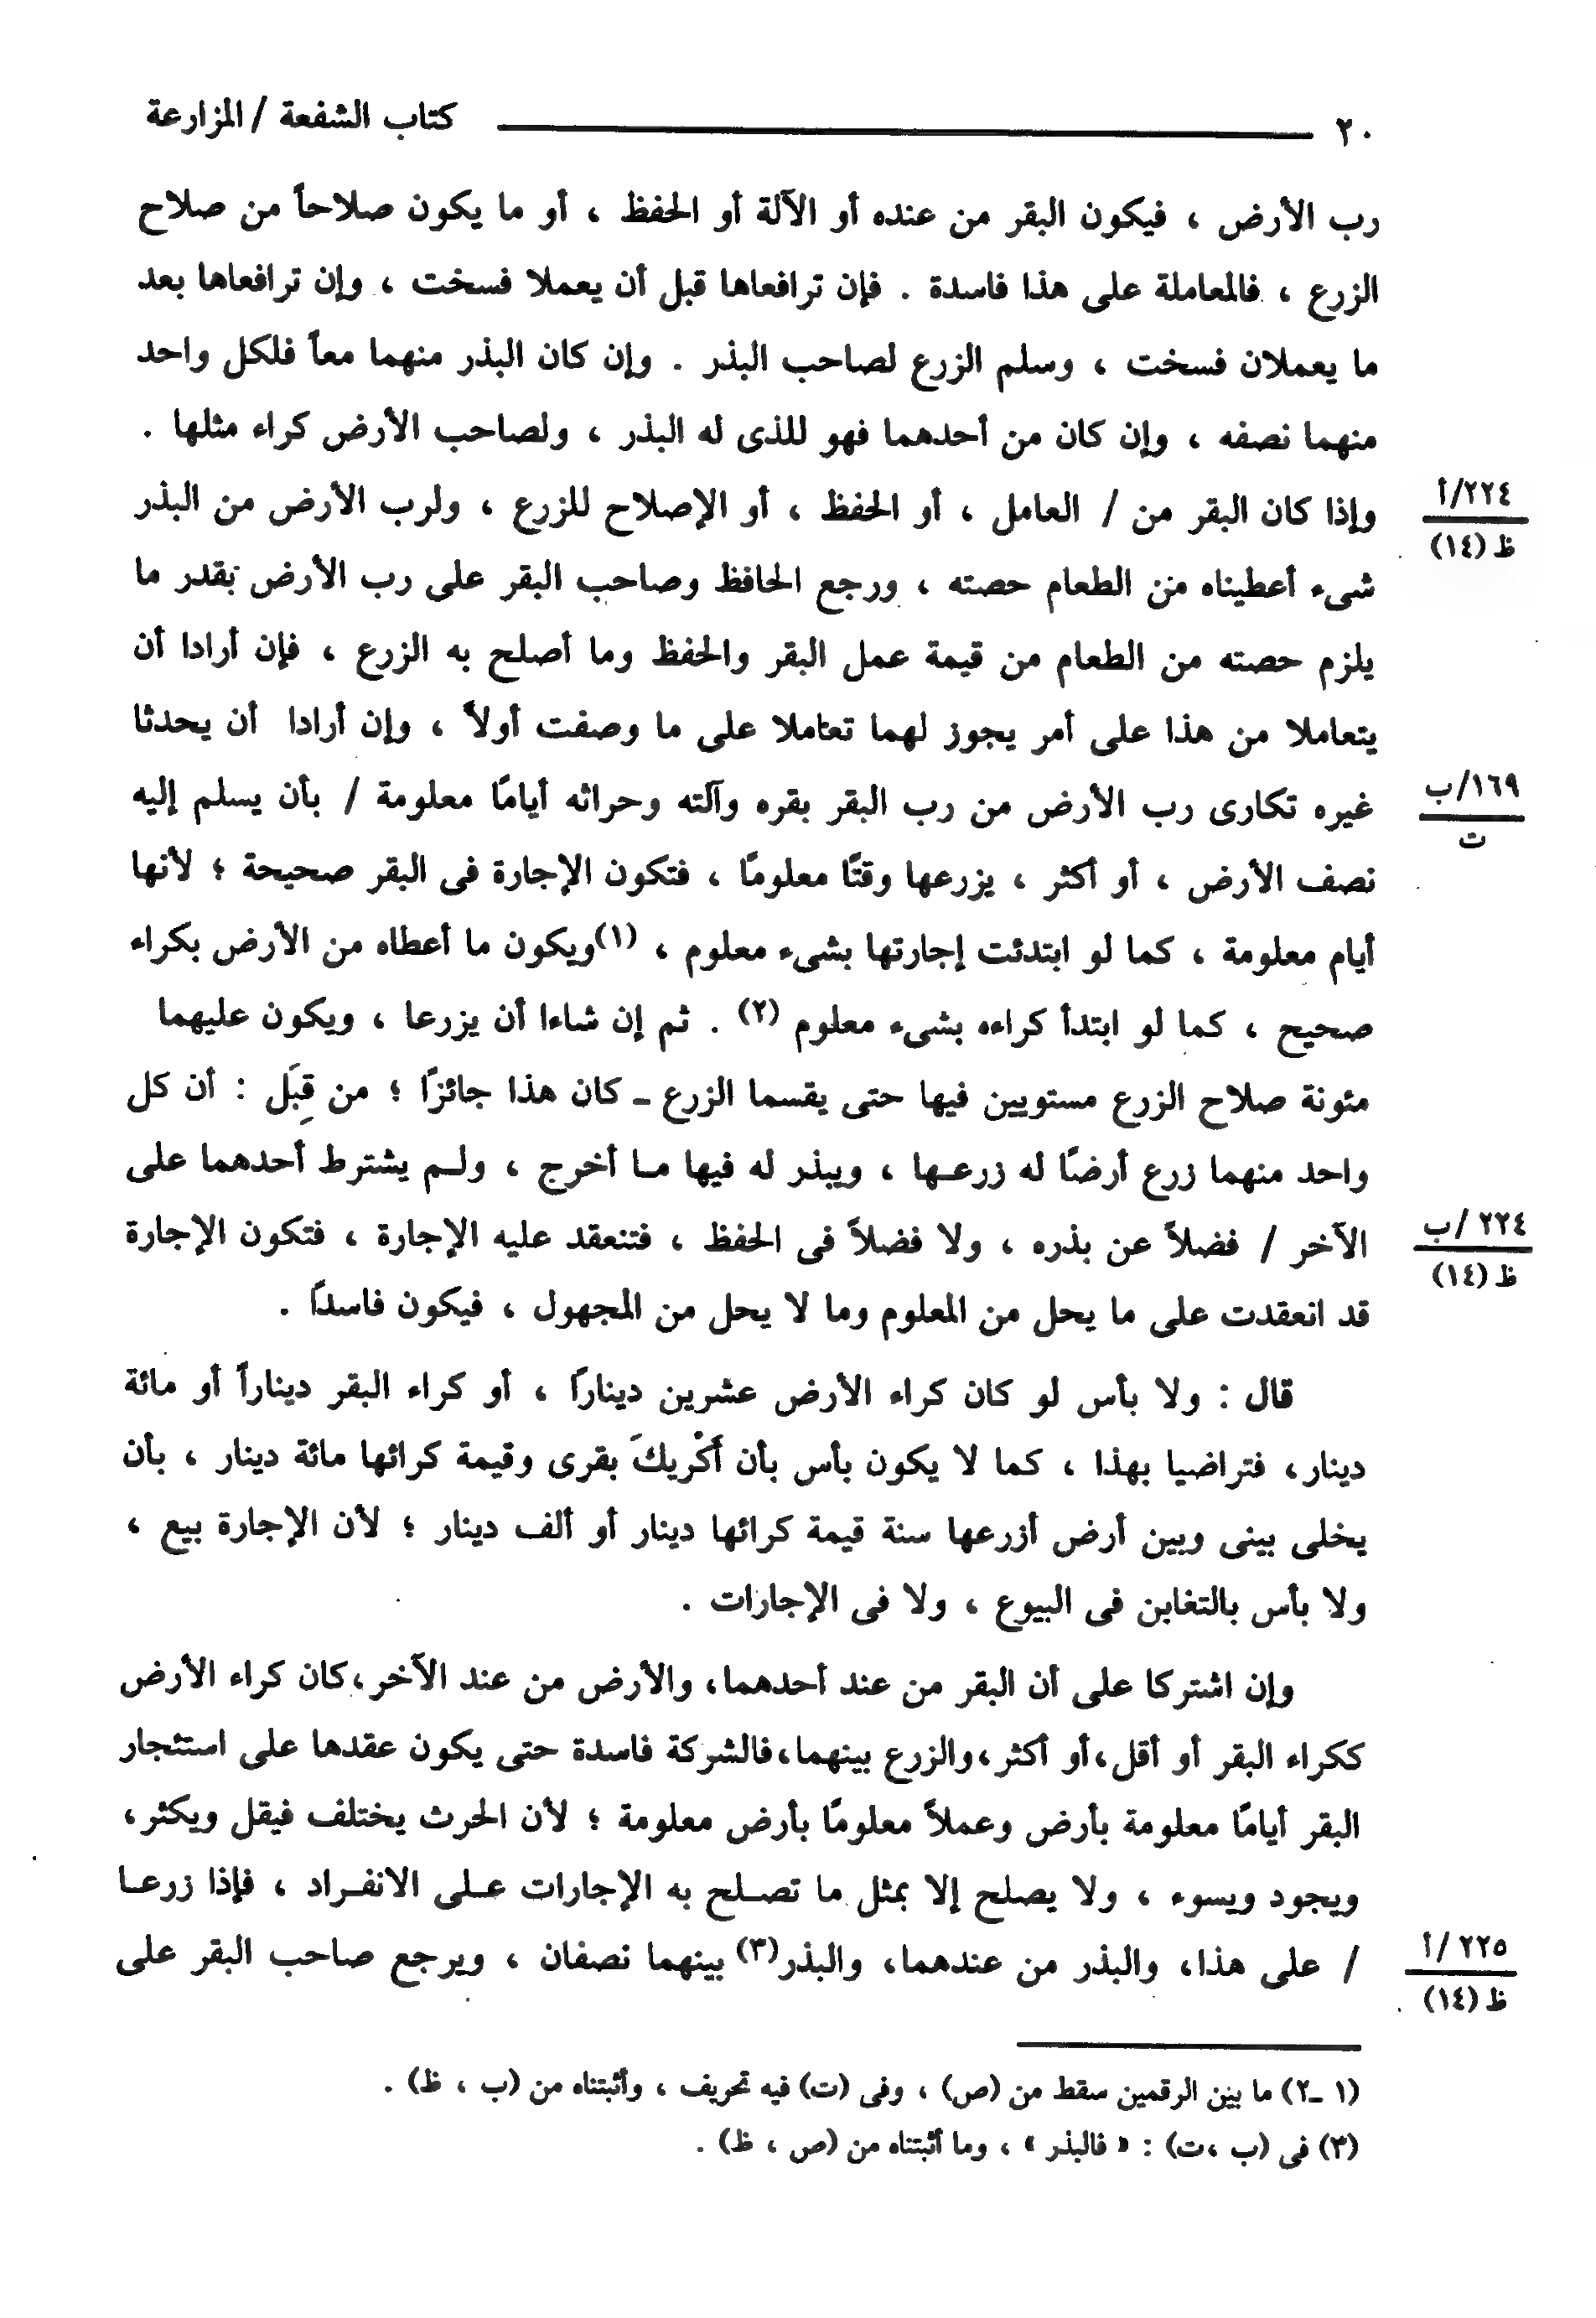 ٢٠ كتاب الشفعة / المزارعة
رب الأرض ، فيكون البقر من عنده أو الآلة أو الحفظ ، أو ما يكون صلاحاً من صلاح
الزرع ، فالمعاملة على هذا فاسدة . فإن ترافعاها قبل أن يعملا فسخت ، وإن ترافعاها بعد
ما يعملان فسخت ، وسلم الزرع لصاحب البذر . وإن كان البذر منهما معاً فلكل واحد
منهما نصفه ، وإن كان من أحدهما فهو للذى له البذر ، ولصاحب الأرض كراء مثلها .
وإذا كان البقر من / العامل ، أو الحفظ ، أو الإصلاح للزرع ، ولرب الأرض من البذر
٢٢٤/أ
ظ (١٤)
شىء أعطيناه من الطعام حصته ، ورجع الحافظ وصاحب البقر على رب الأرض بقدر ما
يلزم حصته من الطعام من قيمة عمل البقر والحفظ وما أصلح به الزرع ، فإن أرادا أن
يتعاملا من هذا على أمر يجوز لهما تعاملا على ما وصفت أولاً ، وإن أرادا أن يحدثا
غيره تكارى رب الأرض من رب البقر بقره وآلته وحراثه أيامًا معلومة / بأن يسلم إليه
١٦٩/ب
ت
نصف الأرض ، أو أكثر ، يزرعها وقتًا معلومًا ، فتكون الإجارة فى البقر صحيحة ؛ لأنها
أيام معلومة ، كما لو ابتدئت إجارتها بشىء معلوم ، (١)ويكون ما أعطاه من الأرض بكراء
صحيح ، كما لو ابتدأ كراءه بشىء معلوم (٢) . ثم إن شاءا أن يزرعا ، ويكون عليهما
مئونة صلاح الزرع مستويين فيها حتى يقسما الزرع ـ كان هذا جائزًا ؛ من قِبَل : أن كل
واحد منهما زرع أرضًا له زرعـها ، ويبذر له فيها مـا أخرج ، ولـم يشترط أحدهما على
الآخر / فضلاً عن بذره ، ولا فضلاً فى الحفظ ، فتنعقد عليه الإجارة ، فتكون الإجارة
٢٢٤ /ب
ظ (١٤)
قد انعقدت على ما يحل من المعلوم وما لا يحل من المجهول ، فيكون فاسداً .
قال : ولا بأس لو كان كراء الأرض عشرين دينارًا ، أو كراء البقر ديناراً أو مائة
دينار، فتراضيا بهذا ، كما لا يكون بأس بأن أُكْرِيكَ بقرى وقيمة كرائها مائة دينار ، بأن
يخلى بينى وبين أرض أزرعها سنة قيمة كرائها دينار أو ألف دينار ؛ لأن الإجارة بيع ،
ولا بأس بالتغابن فى البيوع ، ولا فى الإجارات .
وإن اشتركا على أن البقر من عند أحدهما، والأرض من عند الآخر،كان كراء الأرض
ككراء البقر أو أقل،أو أكثر،والزرع بينهما،فالشركة فاسدة حتى يكون عقدها على استئجار
البقر أيامًا معلومة بأرض وعملاً معلومًا بأرض معلومة ؛ لأن الحرث يختلف فيقل ويكثر،
ويجود ويسوء ، ولا يصلح إلا بمثل ما تصـلح به الإجارات عـلى الانفـراد ، فإذا زرعـا
/ على هذا، والبذر من عندهما، والبذر(٣) بينهما نصفان ، ويرجع صاحب البقر على
٢٢٥ /أ
ظ (١٤)
(١ ـ٢) ما بين الرقمين سقط من (ص) ، وفى (ت) فيه تحريف ، وأثبتناه من (ب ، ظ) .
(٣) فى (ب ،ت) : « فالبذر » ، وما أثبتناه من (ص ، ظ) .